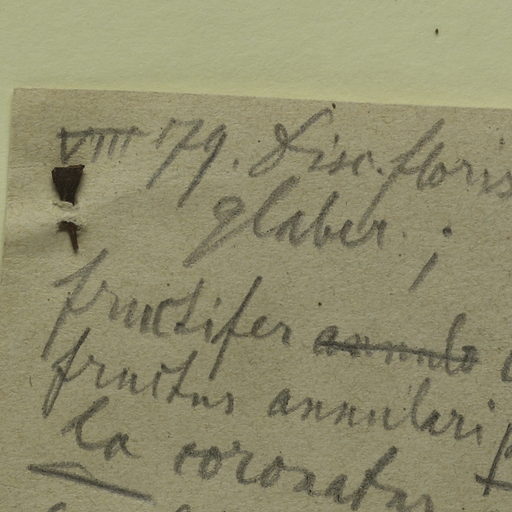 VIII 79. Disc. floris
glaber. ;
fructifer annulo
fructus annulari
la coronatus